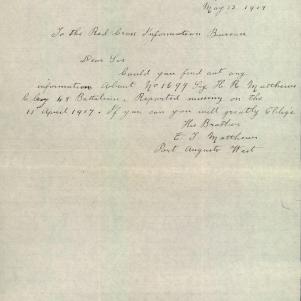 May 23 1917
To the Red Cross Information Bureau
Dear Sir
Could you find out any
information About No 1699 Pte H R Matthews
C Coy 48 Battalion. Reported missing on the
11 April 1917. If you can you will greatly Oblige
His Brother
E. J. Matthews
Port Augusta West